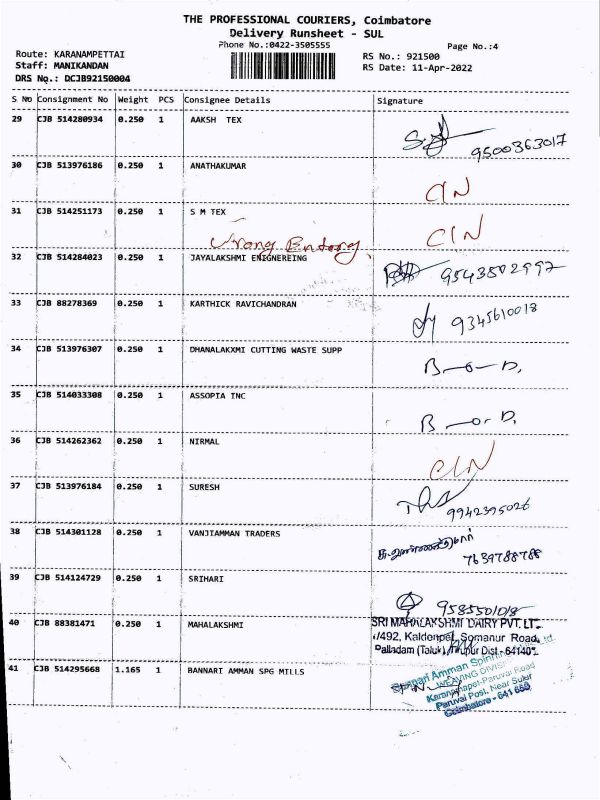 THE PROFESSIONAL COURIERS, Coimbatore
Delivery Runsheet - SUL
Phone No.:0422-3505555
Page No.:4
Route: KARANAMPETTAI
RS No.: 921500
Staff: MANIKANDAN
RS Date: 11-Apr-2022
DRS No.: DCJB92150004
S No Consignment No Weight PCS Consignee Details Signature
29 CJB 514280934 0.250 1 AAKSH TEX
9500363017
30 CJB 513976186 0.250 1 ANATHAKUMAR
CIN
31 CJB 514251173 0.250 1 S M TEX
CIN
Wrong Entory
32 CJB 514284023 0.250 1 JAYALAKSHMI ENIGNEREING
9543502997
33 CJB 88278369 0.250 1 KARTHICK RAVICHANDRAN
9345610018
34 CJB 513976307 0.250 1 DHANALAKXMI CUTTING WASTE SUPP
B-o-D,
35 CJB 514033308 0.250 1 ASSOPIA INC
B-o-D,
36 CJB 514262362 0.250 1 NIRMAL
CIN
37 CJB 513976184 0.250 1 SURESH
9942395026
38 CJB 514301128 0.250 1 VANJIAMMAN TRADERS
7639788788
39 CJB 514124729 0.250 1 SRIHARI
40 CJB 88381471 0.250 1 MAHALAKSHMI
SRI MAHALAKSHMI DAIRY PVT. LT
/492, Kaldenpet, Somanur Road,
Palladam (Taluk), Tirupur Dist - 64140
41 CJB 514295668 1.165 1 BANNARI AMMAN SPG MILLS
Bannari Amman Spinning Ltd
WEAVING DIVISION
Karanampet-Paruvai Road
Paruvai Post, Near Sulur
Coimbatore - 641 658